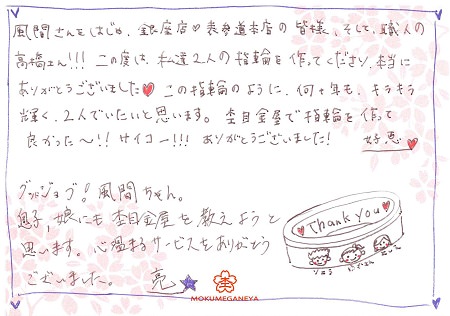 風間さんをはじめ、銀座店♡表参道本店の皆様、そして、職人の
高橋さん!!! この度は、私達2人の指輪を作ってくださり、本当に
ありがとうございました♥ この指輪のように、何十年も、キラキラ
輝く、2人でいたいと思います。 杢目金屋で指輪を作って
良かった〜!! サイコー!!! ありがとうございました!
好恵
グッドジョブ! 風間ちゃん。
息子、娘にも杢目金屋を教えようと
思います。心温まるサービスをありがとう
ございました。 亮
Thank you
りょう
MOKUMEGANEYA